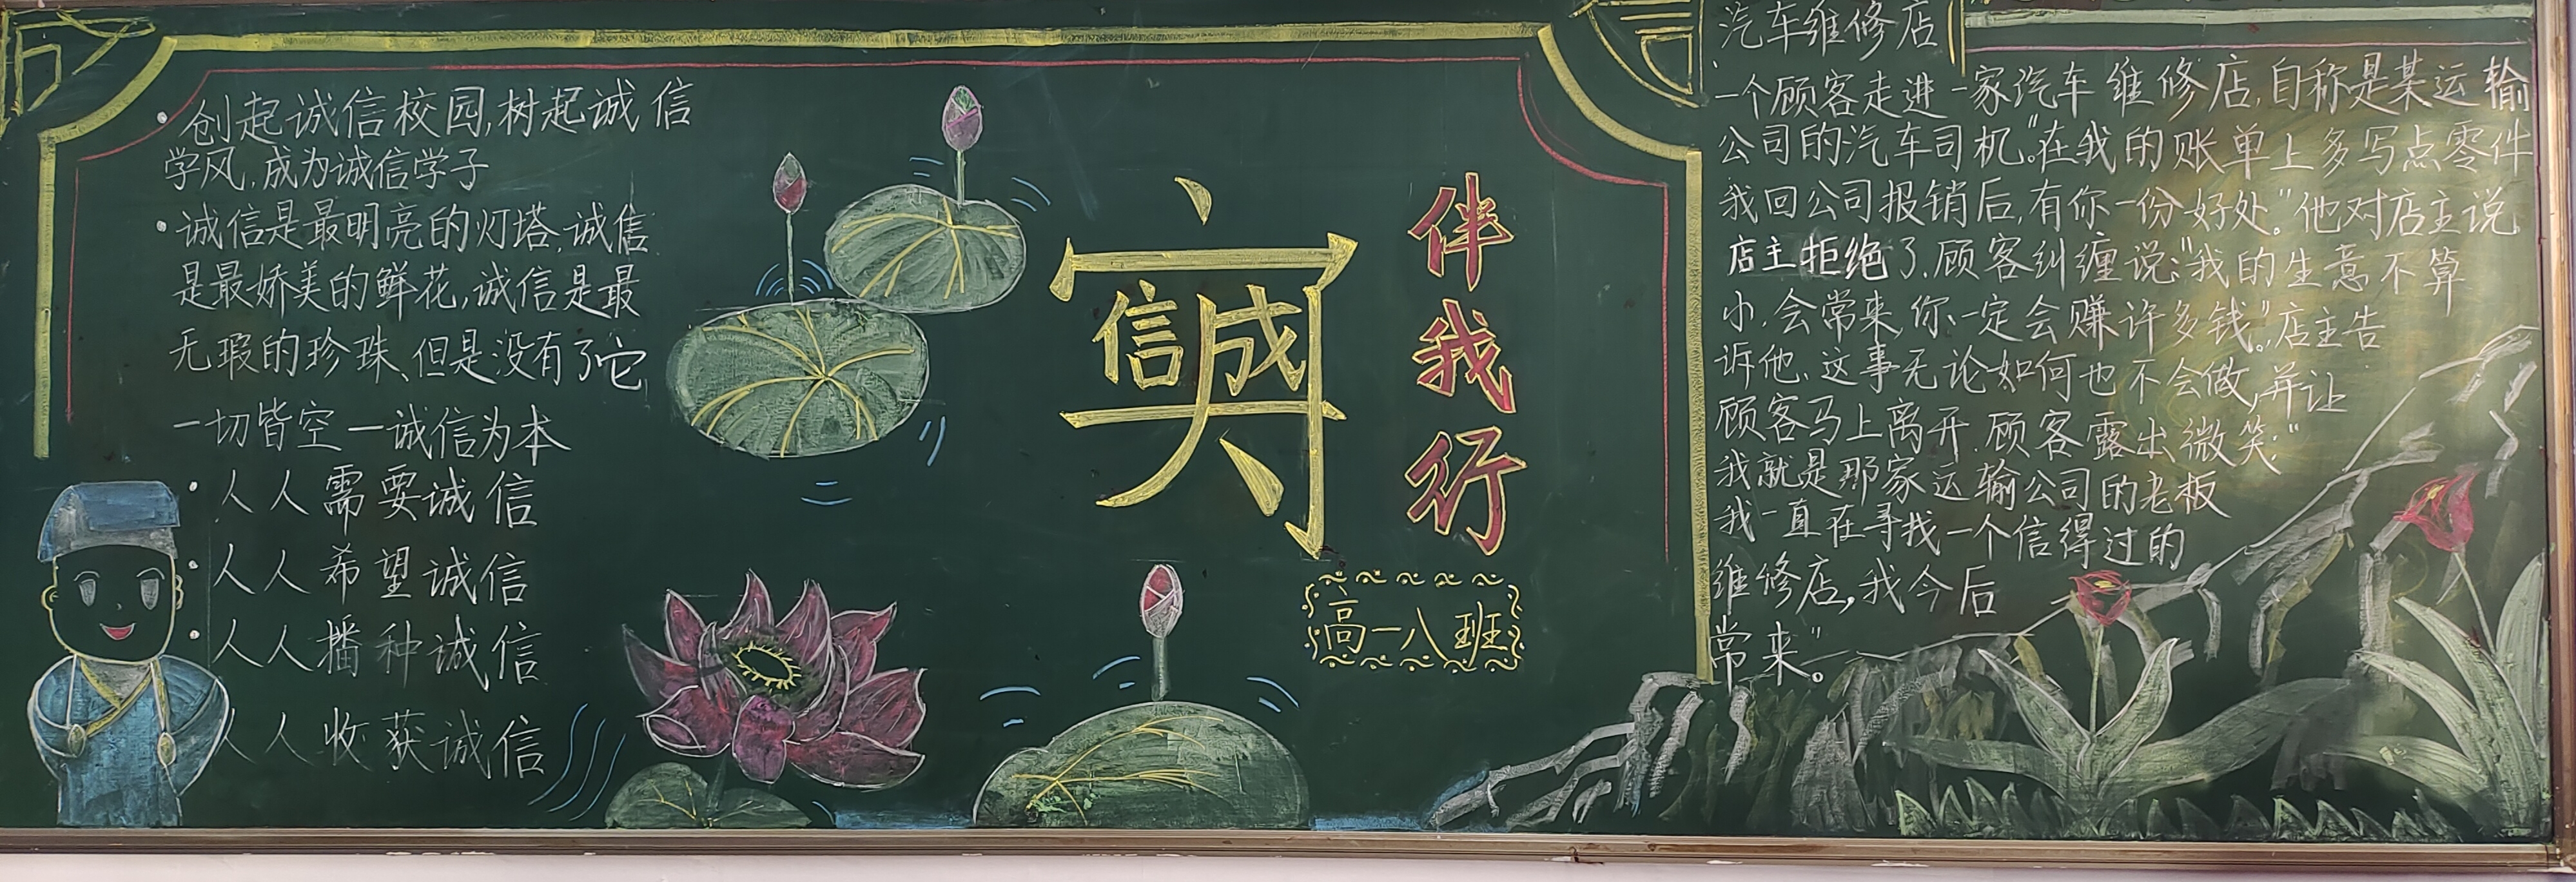 创起诚信校园,树起诚信
学风,成为诚信学子
诚信是最明亮的灯塔,诚信
是最娇美的鲜花,诚信是最
无瑕的珍珠、但是没有了它
一切皆空一诚信为本
人人需要诚信
人人希望诚信
人人播种诚信
人人收获诚信
信诚
伴我行
高一八班
汽车维修店
一个顾客走进一家汽车维修店,自称是某运输
公司的汽车司机。"在我的账单上多写点零件
我回公司报销后,有你一份好处。"他对店主说
店主拒绝了.顾客纠缠说:"我的生意不算
小,会常来,你一定会赚许多钱。"店主告
诉他、这事无论如何也不会做,并让
顾客马上离开.顾客露出微笑:"
我就是那家运输公司的老板
我一直在寻找一个信得过的
维修店,我今后
常来"。